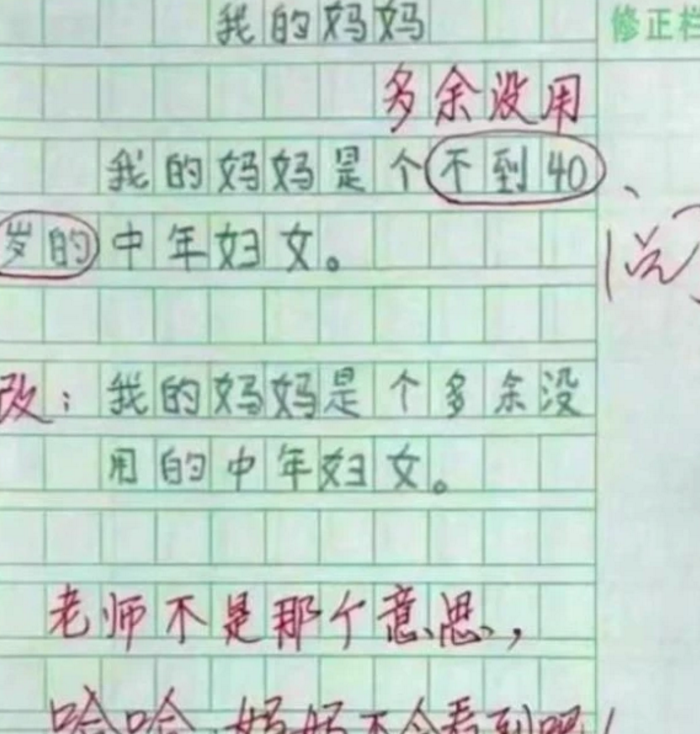 我的妈妈
修正栏
多余没用
我的妈妈是个不到40
岁的中年妇女。
改：我的妈妈是个多余没
用的中年妇女。
老师不是那个意思，
哈哈，妈妈不会看到吧！